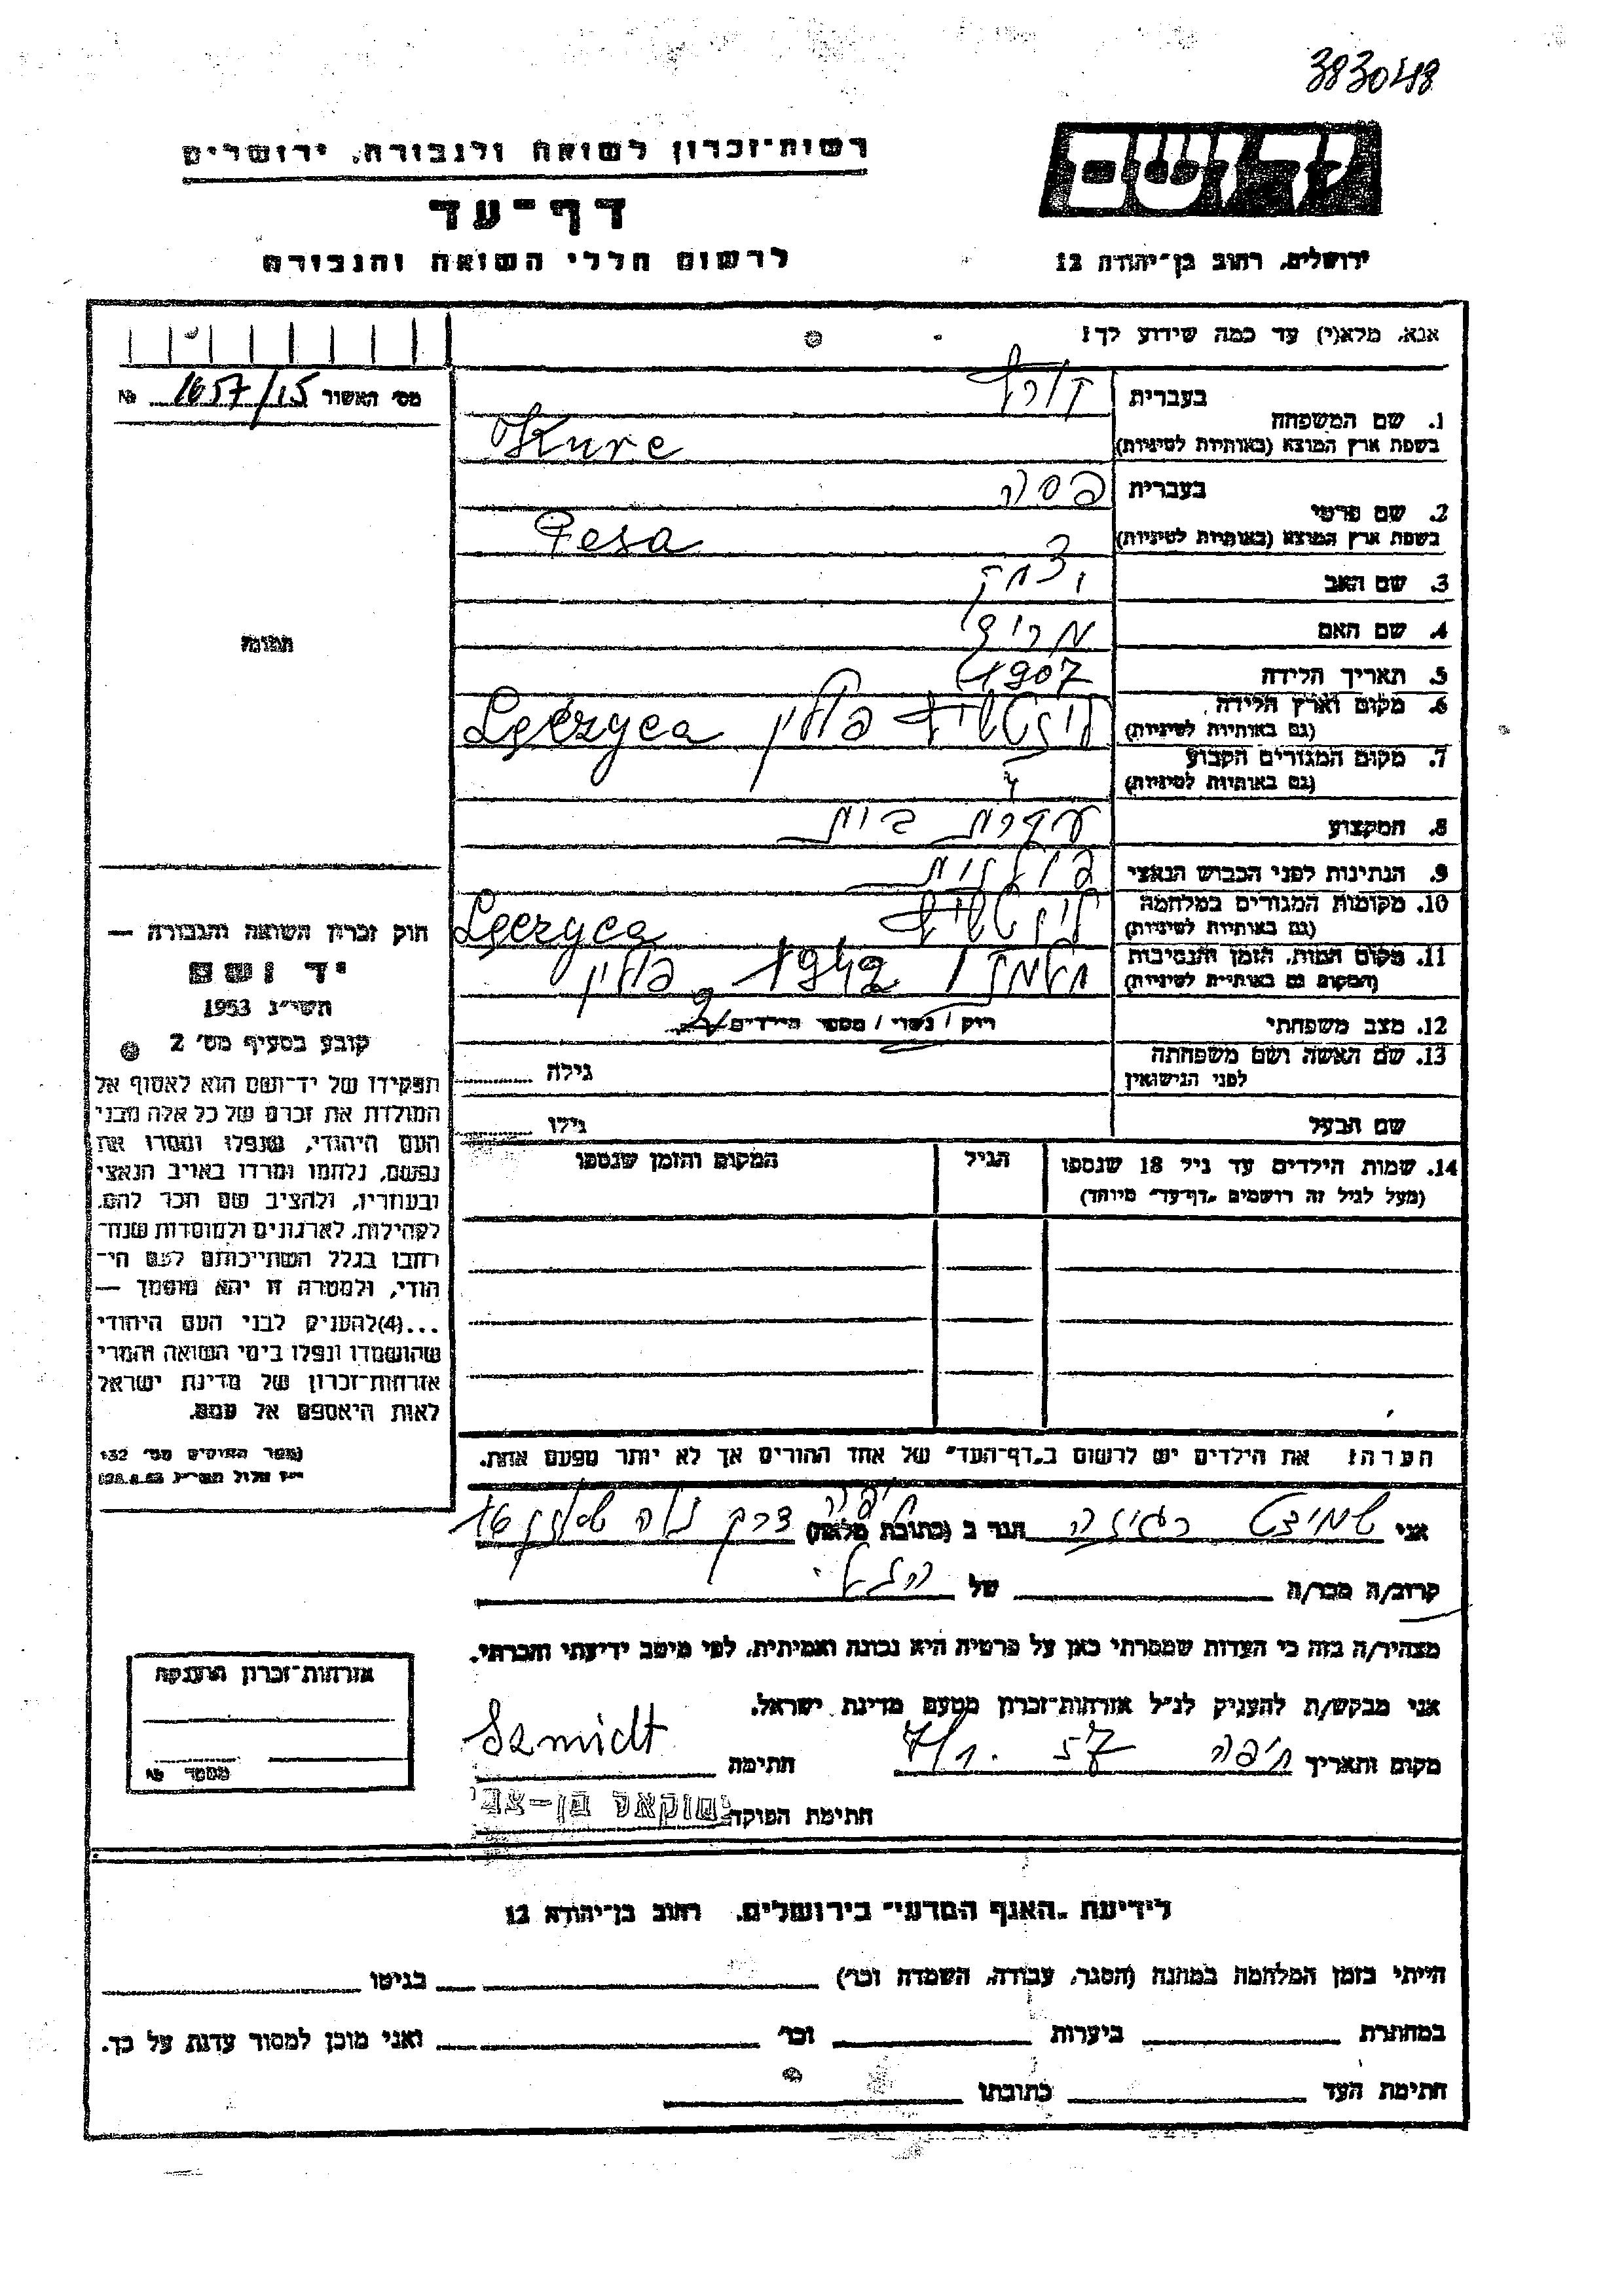 383048
רשות־זכרון לשואה ולגבורה, ירושלים
דף־עד
לרשום חללי השואה והגבורה
ידושם
ירושלים, רחוב בן־יהודה 12
אנא, מלא(י) עד כמה שידוע לך!
מס׳ האשור 1657/15 №
1. שם המשפחה
בעברית
בשפת ארץ המוצא (באותיות לטיניות) Kure
2. שם פרטי
בעברית פסה
בשפת ארץ המוצא (באותיות לטיניות) Pesa
3. שם האב יצחק
4. שם האם
5. תאריך הלידה 1907
6. מקום וארץ הלידה פולין Łęczyca
(גם באותיות לטיניות)
7. מקום המגורים הקבוע
(גם באותיות לטיניות)
8. המקצוע עקרת בית
9. הנתינות לפני הכבוש הנאצי פולנית
10. מקומות המגורים במלחמה Łęczyca
(גם באותיות לטיניות)
11. מקום המות, הזמן והנסיבות 1942 פולין
(המקום גם באותיות לטיניות)
12. מצב משפחתי רווק / נשוי / מספר הילדים 2
13. שם האשה ושם משפחתה
לפני הנישואין
גילה
שם הבעל
גילו
14. שמות הילדים עד גיל 18 שנספו
(מעל לגיל זה רושמים „דף־עד״ מיוחד)
הגיל
המקום והזמן שנספו
הערה: את הילדים יש לרשום ב„דף־העד״ של אחד ההורים אך לא יותר מפעם אחת.
תמונה
חוק זכרון השואה והגבורה —
יד ושם
תשי״ג 1953
קובע בסעיף מס׳ 2
תפקידו של יד־ושם הוא לאסוף אל
המולדת את זכרם של כל אלה מבני
העם היהודי, שנפלו ומסרו את
נפשם, נלחמו ומרדו באויב הנאצי
ובעוזריו, ולהציב שם וזכר להם,
לקהילות, לארגונים ולמוסדות שנח־
רבו בגלל השתייכותם לעם הי־
הודי, ולמטרה זו יהא מוסמך —
...(4)להעניק לבני העם היהודי
שהושמדו ונפלו בימי השואה והמרי
אזרחות־זכרון של מדינת ישראל
לאות היאספם אל עמם.
(ספר החוקים מס׳ 132
י״ז אלול תשי״ג 28.8.53)
אני שמידט הגר ב (כתובת מלאה) חיפה דרך נוה שאנן 16
קרוב/ה מכר/ה של
מצהיר/ה בזה כי העדות שמסרתי כאן על פרטיה היא נכונה ואמיתית, לפי מיטב ידיעתי והכרתי.
אני מבקש/ת להעניק לנ״ל אזרחות־זכרון מטעם מדינת ישראל.
מקום ותאריך חיפה 57 חתימה Szmidt
חתימת הפוקד בן־צבי
אזרחות־זכרון הוענקה
מספר №
לידיעת „האגף המדעי״ בירושלים, רחוב בן־יהודה 12
הייתי בזמן המלחמה במחנה (הסגר, עבודה, השמדה וכו׳) בגיטו
במחתרת ביערות וכו׳ ואני מוכן למסור עדות על כך.
חתימת העד כתובתו